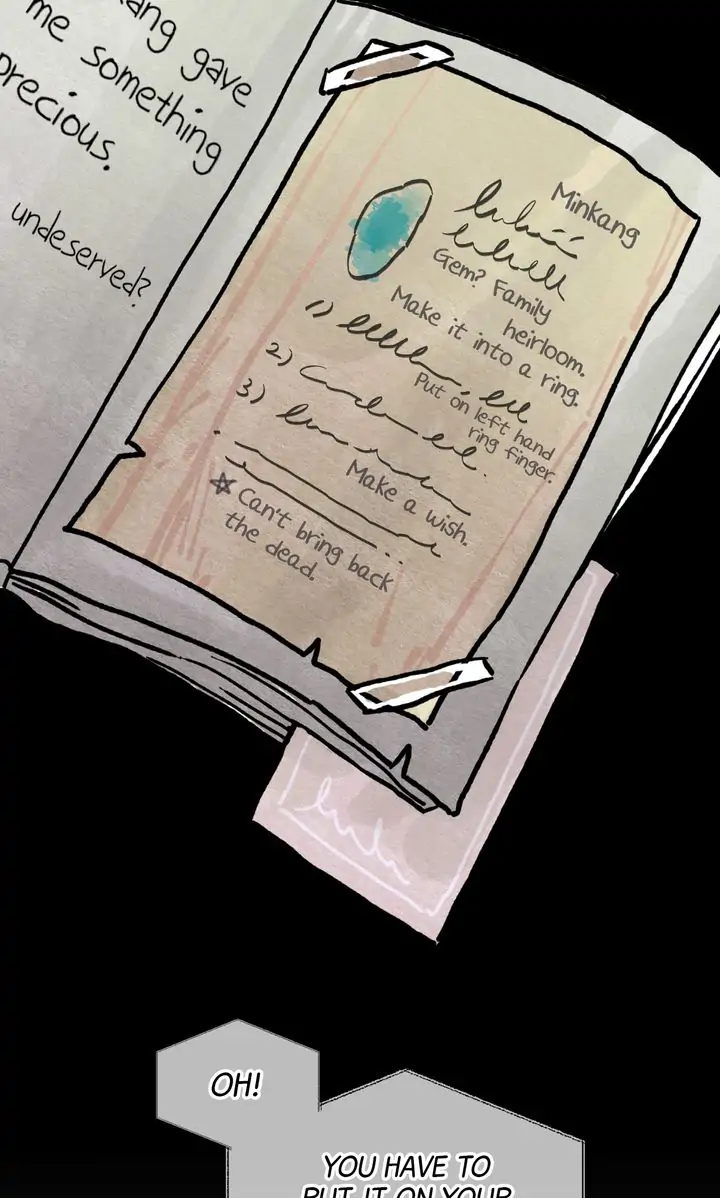 kang gave
me something
precious.
undeserved?
Minkang
Gem? Family
heirloom.
Make it into a ring.
1)
2)
Put on left hand
ring finger.
3)
Make a wish.
☆ Can't bring back
the dead.
OH!
YOU HAVE TO
PUT IT ON YOUR